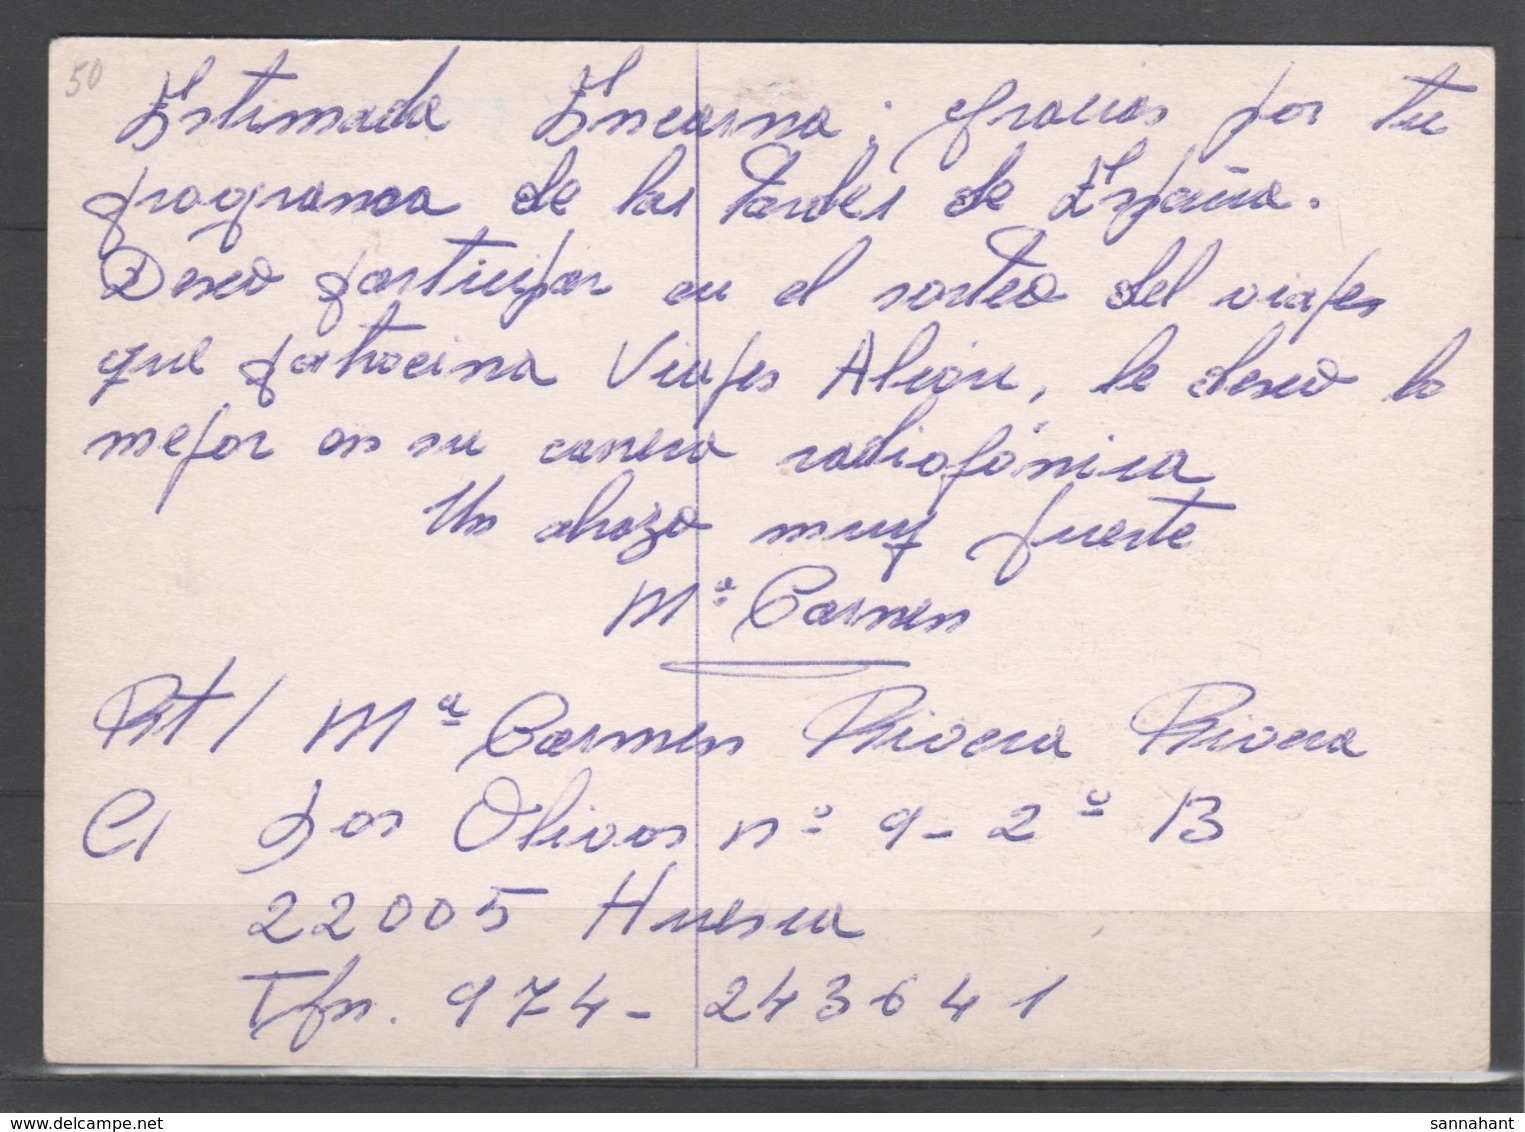 50
Estimada Encarna; gracias por tu
programa de las tardes de España.
Deseo participar en el sorteo del viajes
que patrocina Viajes Alión, le deseo lo
mejor en su carrera radiofónica
Un abrazo muy fuerte
Mª Carmen
Rt/ Mª Carmen Rivera Rivera
C/ Los Olivos nº 9-2º B
22005 Huesca
Tfn. 974-243641
delcampe.net
sannahant